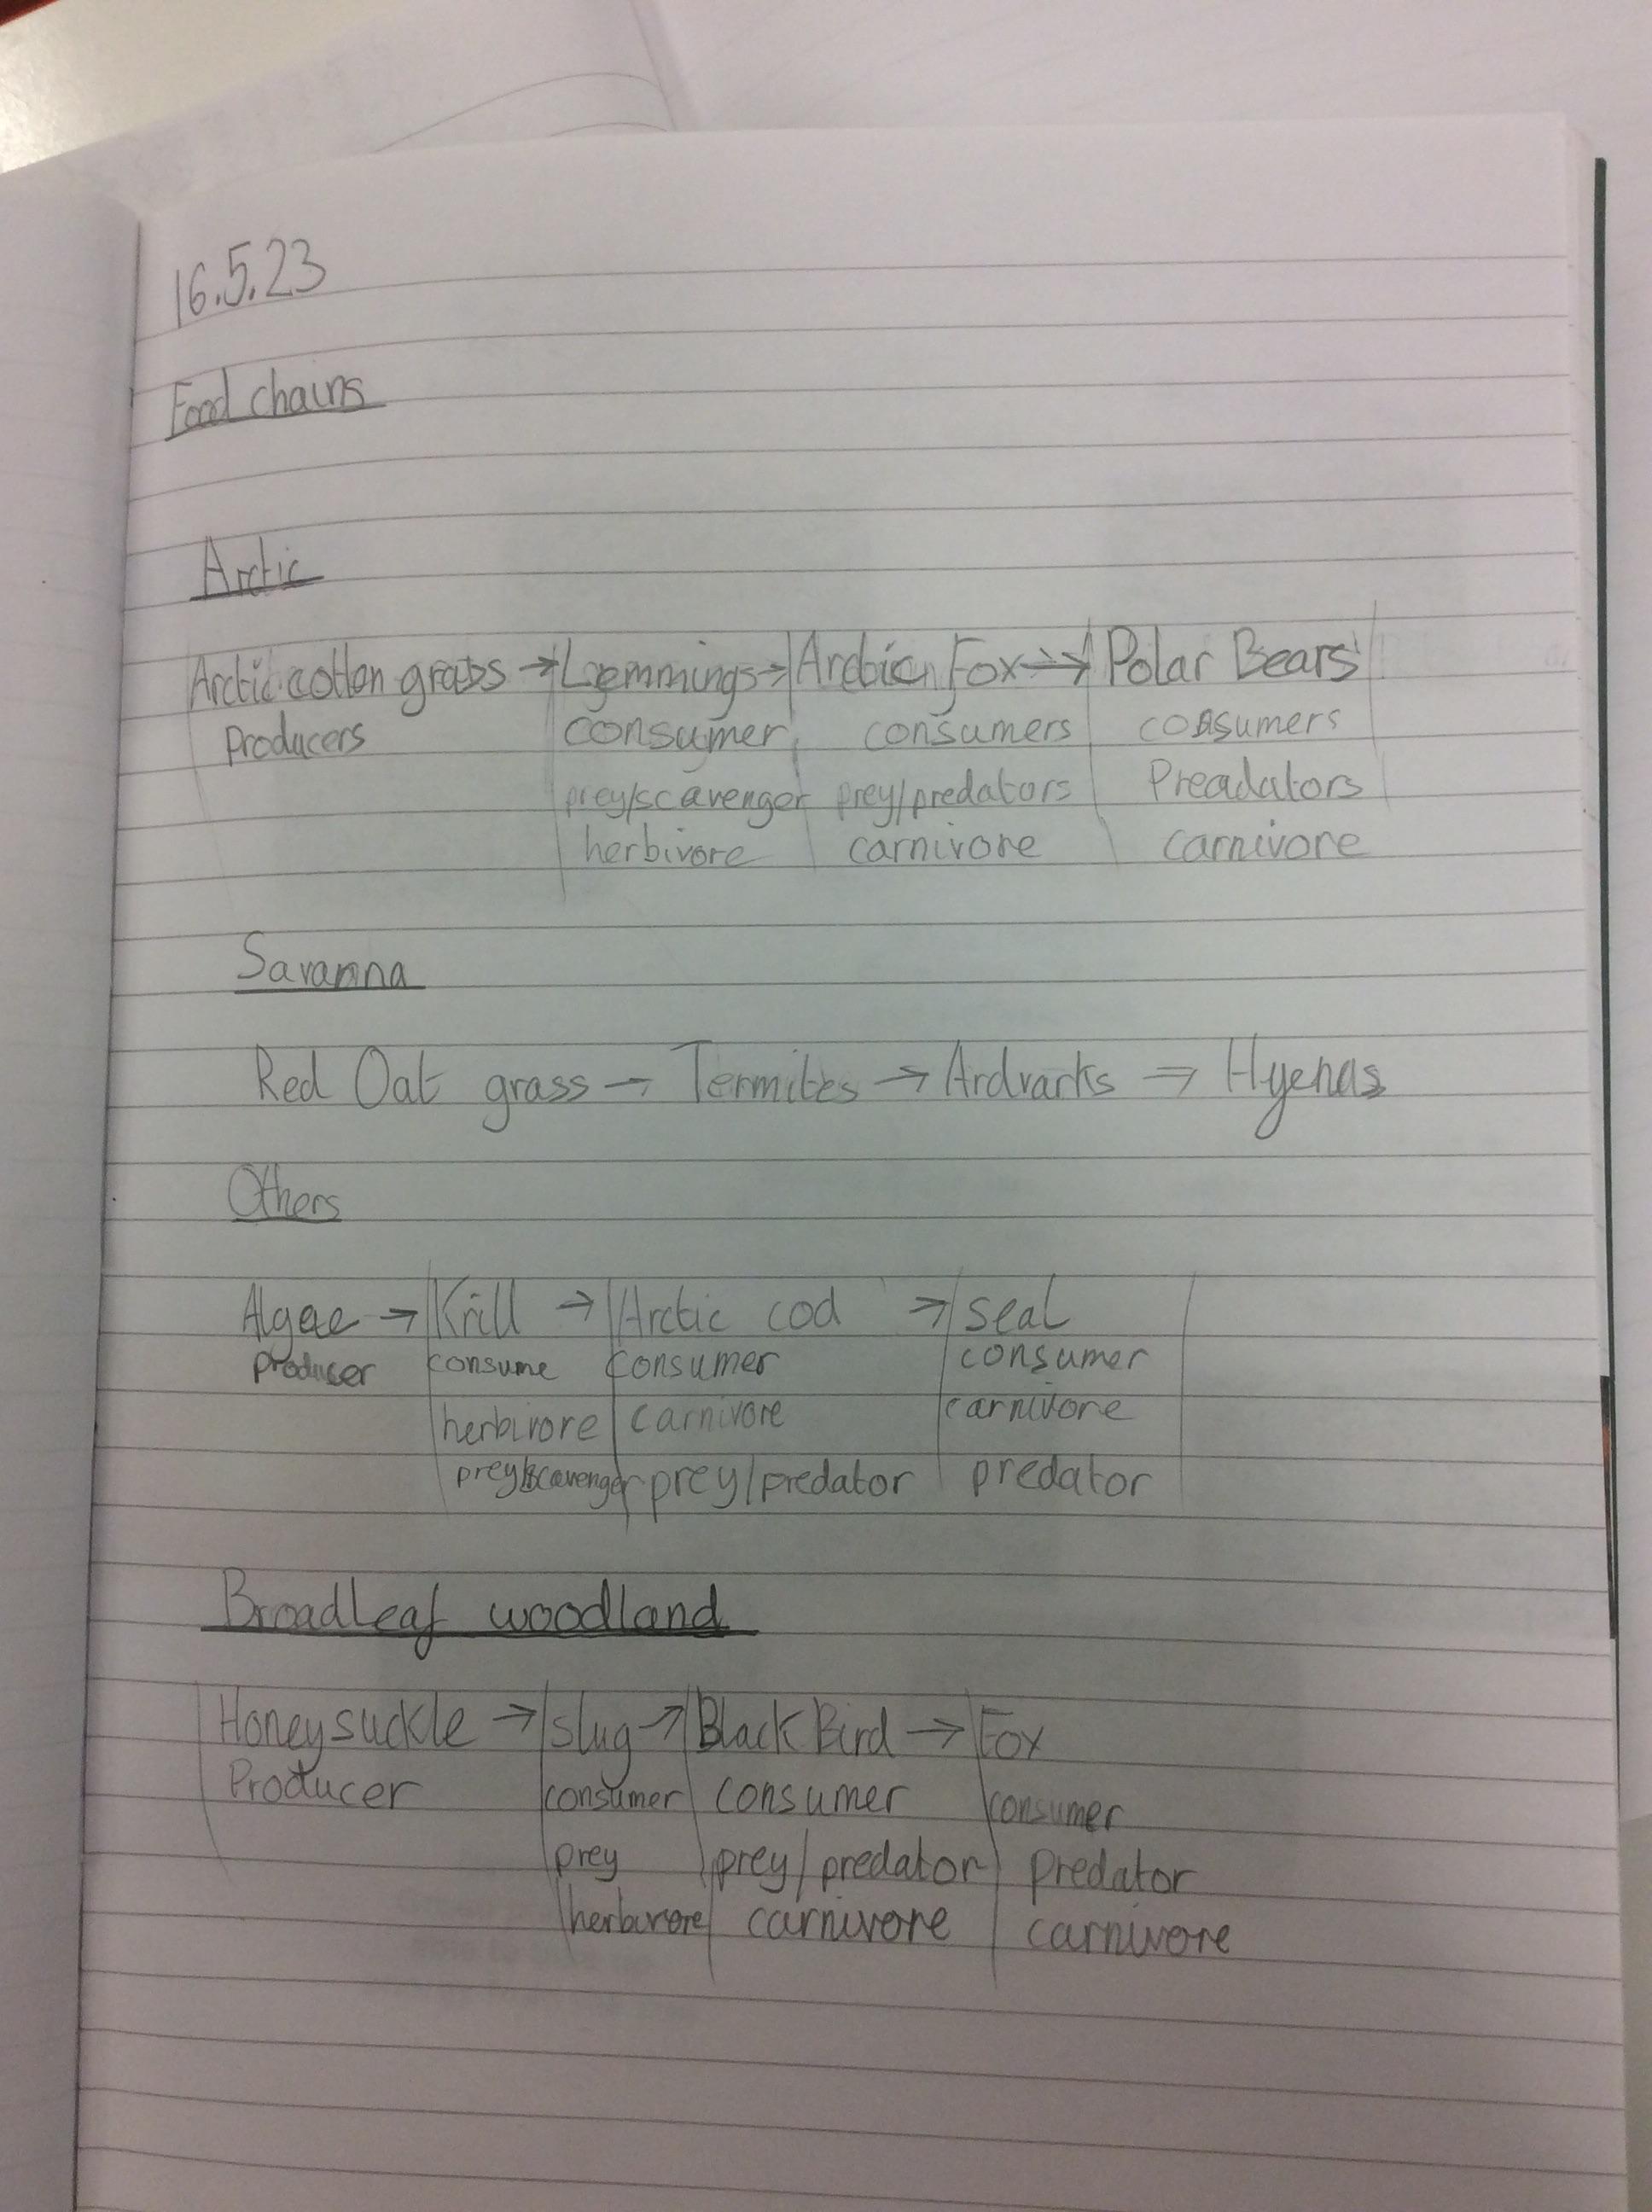 16.5.23
Food chains
Arctic
Arctic cotton grass → Lemmings → Arctic Fox → Polar Bears
Producers consumer consumers consumers
prey/scavenger prey/predators Preadators
herbivore carnivore carnivore
Savanna
Red Oat grass → Termites → Ardvarks → Hyenas
Others
Algae → Krill → Arctic cod → seal
producer consume consumer consumer
herbivore carnivore carnivore
prey/scavenger prey/predator predator
Broadleaf woodland
Honeysuckle → slug → Black Bird → Fox
Producer consumer consumer consumer
prey prey/predator predator
herbivore carnivore carnivore